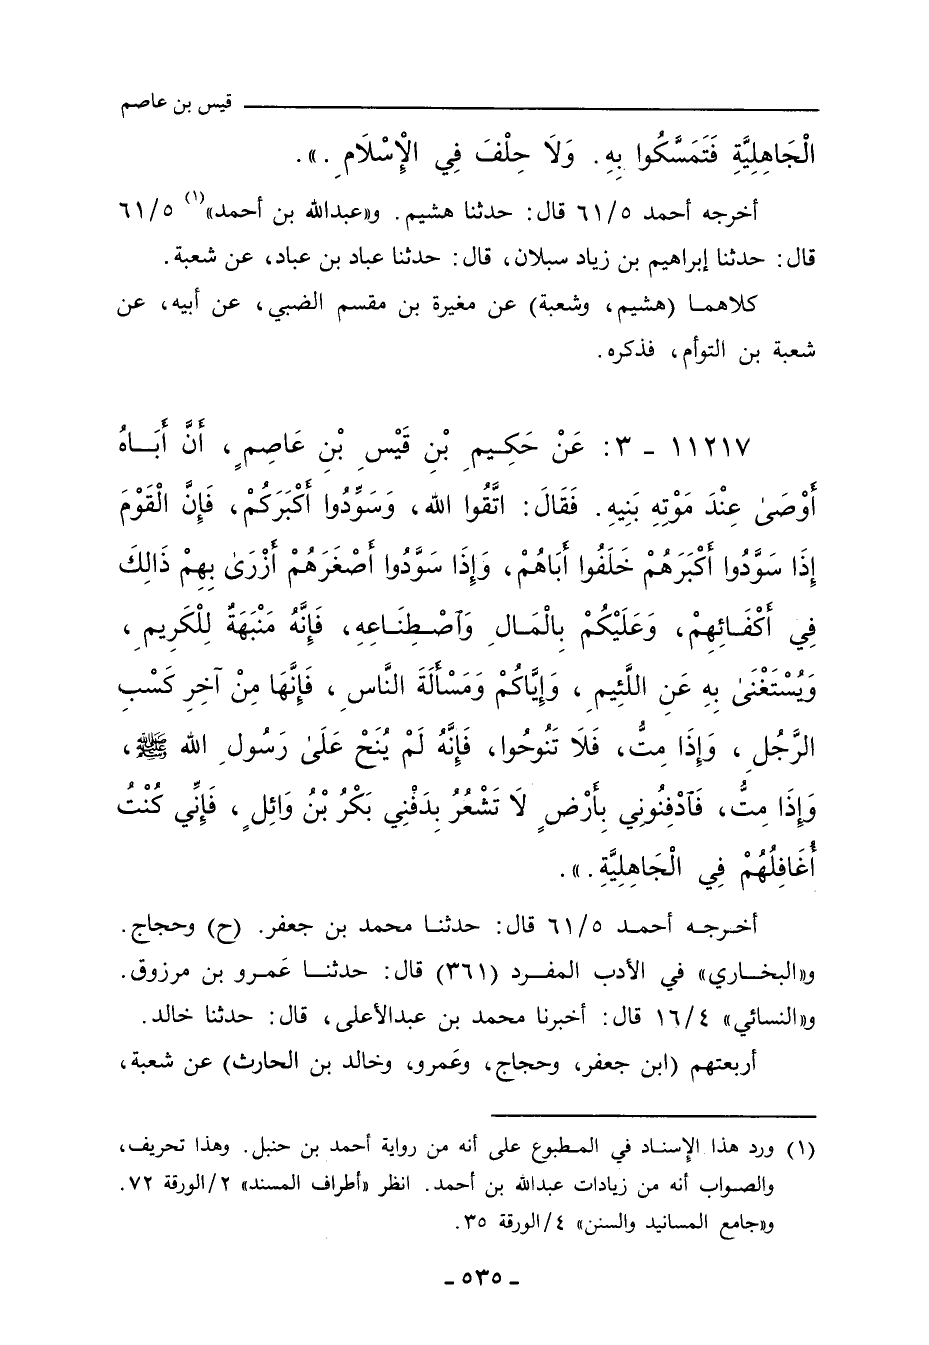 قيس بن عاصم
الْجَاهِلِيَّةِ فَتَمَسَّكُوا بِهِ. وَلَا حِلْفَ فِي الْإِسْلَامِ.».
أخرجه أحمد ٦١/٥ قال: حدثنا هشيم. و«عبدالله بن أحمد»(١) ٦١/٥
قال: حدثنا إبراهيم بن زياد سبلان، قال: حدثنا عباد بن عباد، عن شعبة.
كلاهما (هشيم، وشعبة) عن مغيرة بن مقسم الضبي، عن أبيه، عن
شعبة بن التوأم، فذكره.
١١٢١٧ - ٣: عَنْ حَكِيمِ بْنِ قَيْسِ بْنِ عَاصِمٍ، أَنَّ أَبَاهُ
أَوْصَىٰ عِنْدَ مَوْتِهِ بَنِيهِ. فَقَالَ: اتَّقُوا الله، وَسَوِّدُوا أَكْبَرَكُمْ، فَإِنَّ الْقَوْمَ
إِذَا سَوَّدُوا أَكْبَرَهُمْ خَلَفُوا أَبَاهُمْ، وَإِذَا سَوَّدُوا أَصْغَرَهُمْ أَزْرَىٰ بِهِمْ ذَالِكَ
فِي أَكْفَائِهِمْ، وَعَلَيْكُمْ بِالْمَالِ وَآصْطِنَاعِهِ، فَإِنَّهُ مَنْبَهَةٌ لِلْكَرِيمِ،
وَيُسْتَغْنَىٰ بِهِ عَنِ اللَّئِيمِ، وَإِيَّاكُمْ وَمَسْأَلَةَ النَّاسِ، فَإِنَّهَا مِنْ آخِرِ كَسْبِ
الرَّجُلِ، وَإِذَا مِتُّ، فَلَا تَنُوحُوا، فَإِنَّهُ لَمْ يُنَحْ عَلَىٰ رَسُولِ الله ﷺ،
وَإِذَا مِتُّ، فَآدْفِنُونِي بِأَرْضٍ لَا تَشْعُرُ بِدَفْنِي بَكْرُ بْنُ وَائِلٍ، فَإِنِّي كُنْتُ
أُغَافِلُهُمْ فِي الْجَاهِلِيَّةِ.».
أخرجه أحمد ٦١/٥ قال: حدثنا محمد بن جعفر. (ح) وحجاج.
و«البخاري» في الأدب المفرد (٣٦١) قال: حدثنا عَمرو بن مرزوق.
و«النسائي» ١٦/٤ قال: أخبرنا محمد بن عبدالأعلى، قال: حدثنا خالد.
أربعتهم (ابن جعفر، وحجاج، وعَمرو، وخالد بن الحارث) عن شعبة،
(١) ورد هذا الإسناد في المطبوع على أنه من رواية أحمد بن حنبل. وهذا تحريف،
والصواب أنه من زيادات عبدالله بن أحمد. انظر «أطراف المسند» ٢/الورقة ٧٢.
و«جامع المسانيد والسنن» ٤/الورقة ٣٥.
- ٥٣٥ -